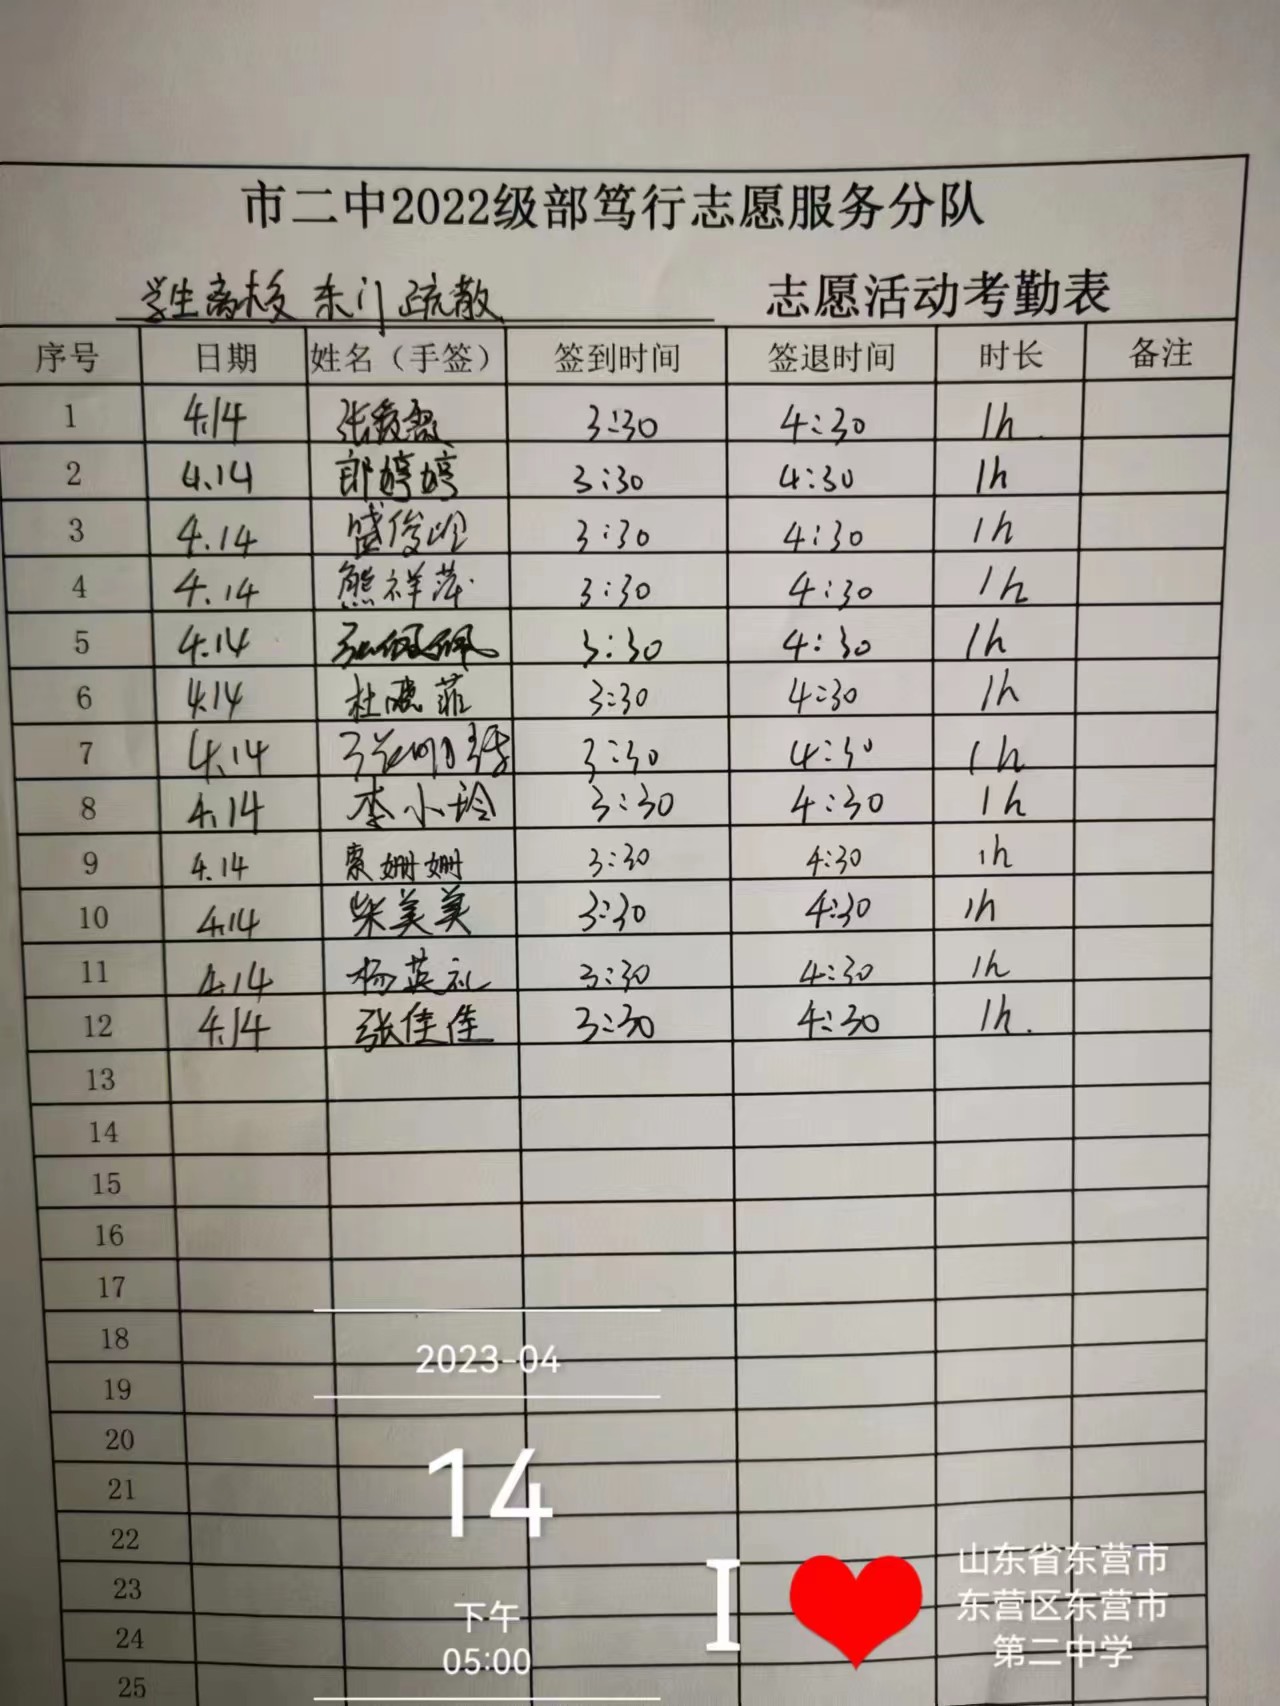 市二中2022级部笃行志愿服务分队
学生离校 东门疏散 志愿活动考勤表
序号 日期 姓名（手签） 签到时间 签退时间 时长 备注
1 4.14 3:30 4:30 1h.
2 4.14 郎婷婷 3:30 4:30 1h
3 4.14 盛俊 3:30 4:30 1h
4 4.14 熊祥萍 3:30 4:30 1h
5 4.14 3:30 4:30 1h
6 4.14 杜晓菲 3:30 4:30 1h
7 4.14 3:30 4:30 1h
8 4.14 李小玲 3:30 4:30 1h
9 4.14 索姗姗 3:30 4:30 1h
10 4.14 柴美美 3:30 4:30 1h
11 4.14 杨英礼 3:30 4:30 1h
12 4.14 张佳佳 3:30 4:30 1h.
13
14
15
16
17
18
2023-04
19
20
14
21
22
I
山东省东营市
23
东营区东营市
下午
24
第二中学
05:00
25